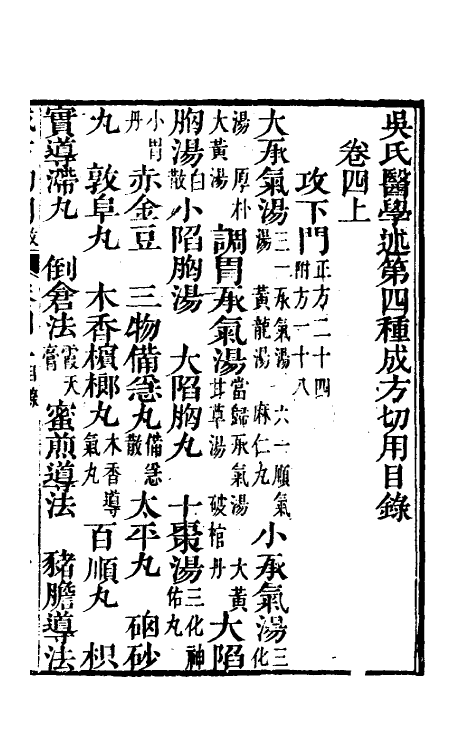 吳氏醫學述第四種成方切用目錄
卷四上
攻下門 正方二十四 附方一十八
大承氣湯 三一承氣湯 六一順氣湯 黃龍湯 麻仁丸 小承氣湯 三化
湯 厚朴大黃湯 調胃承氣湯 當歸承氣湯 大黃甘草湯 破棺丹 大陷
胸湯 白散 小陷胸湯 大陷胸丸 十棗湯 三化神佑丸
小胃丹 赤金豆 三物備急丸 備急散 太平丸 硇砂
丸 敦阜丸 木香檳榔丸 木香導氣丸 百順丸 枳
實導滯丸 倒倉法 霞天膏 蜜煎導法 豬膽導法